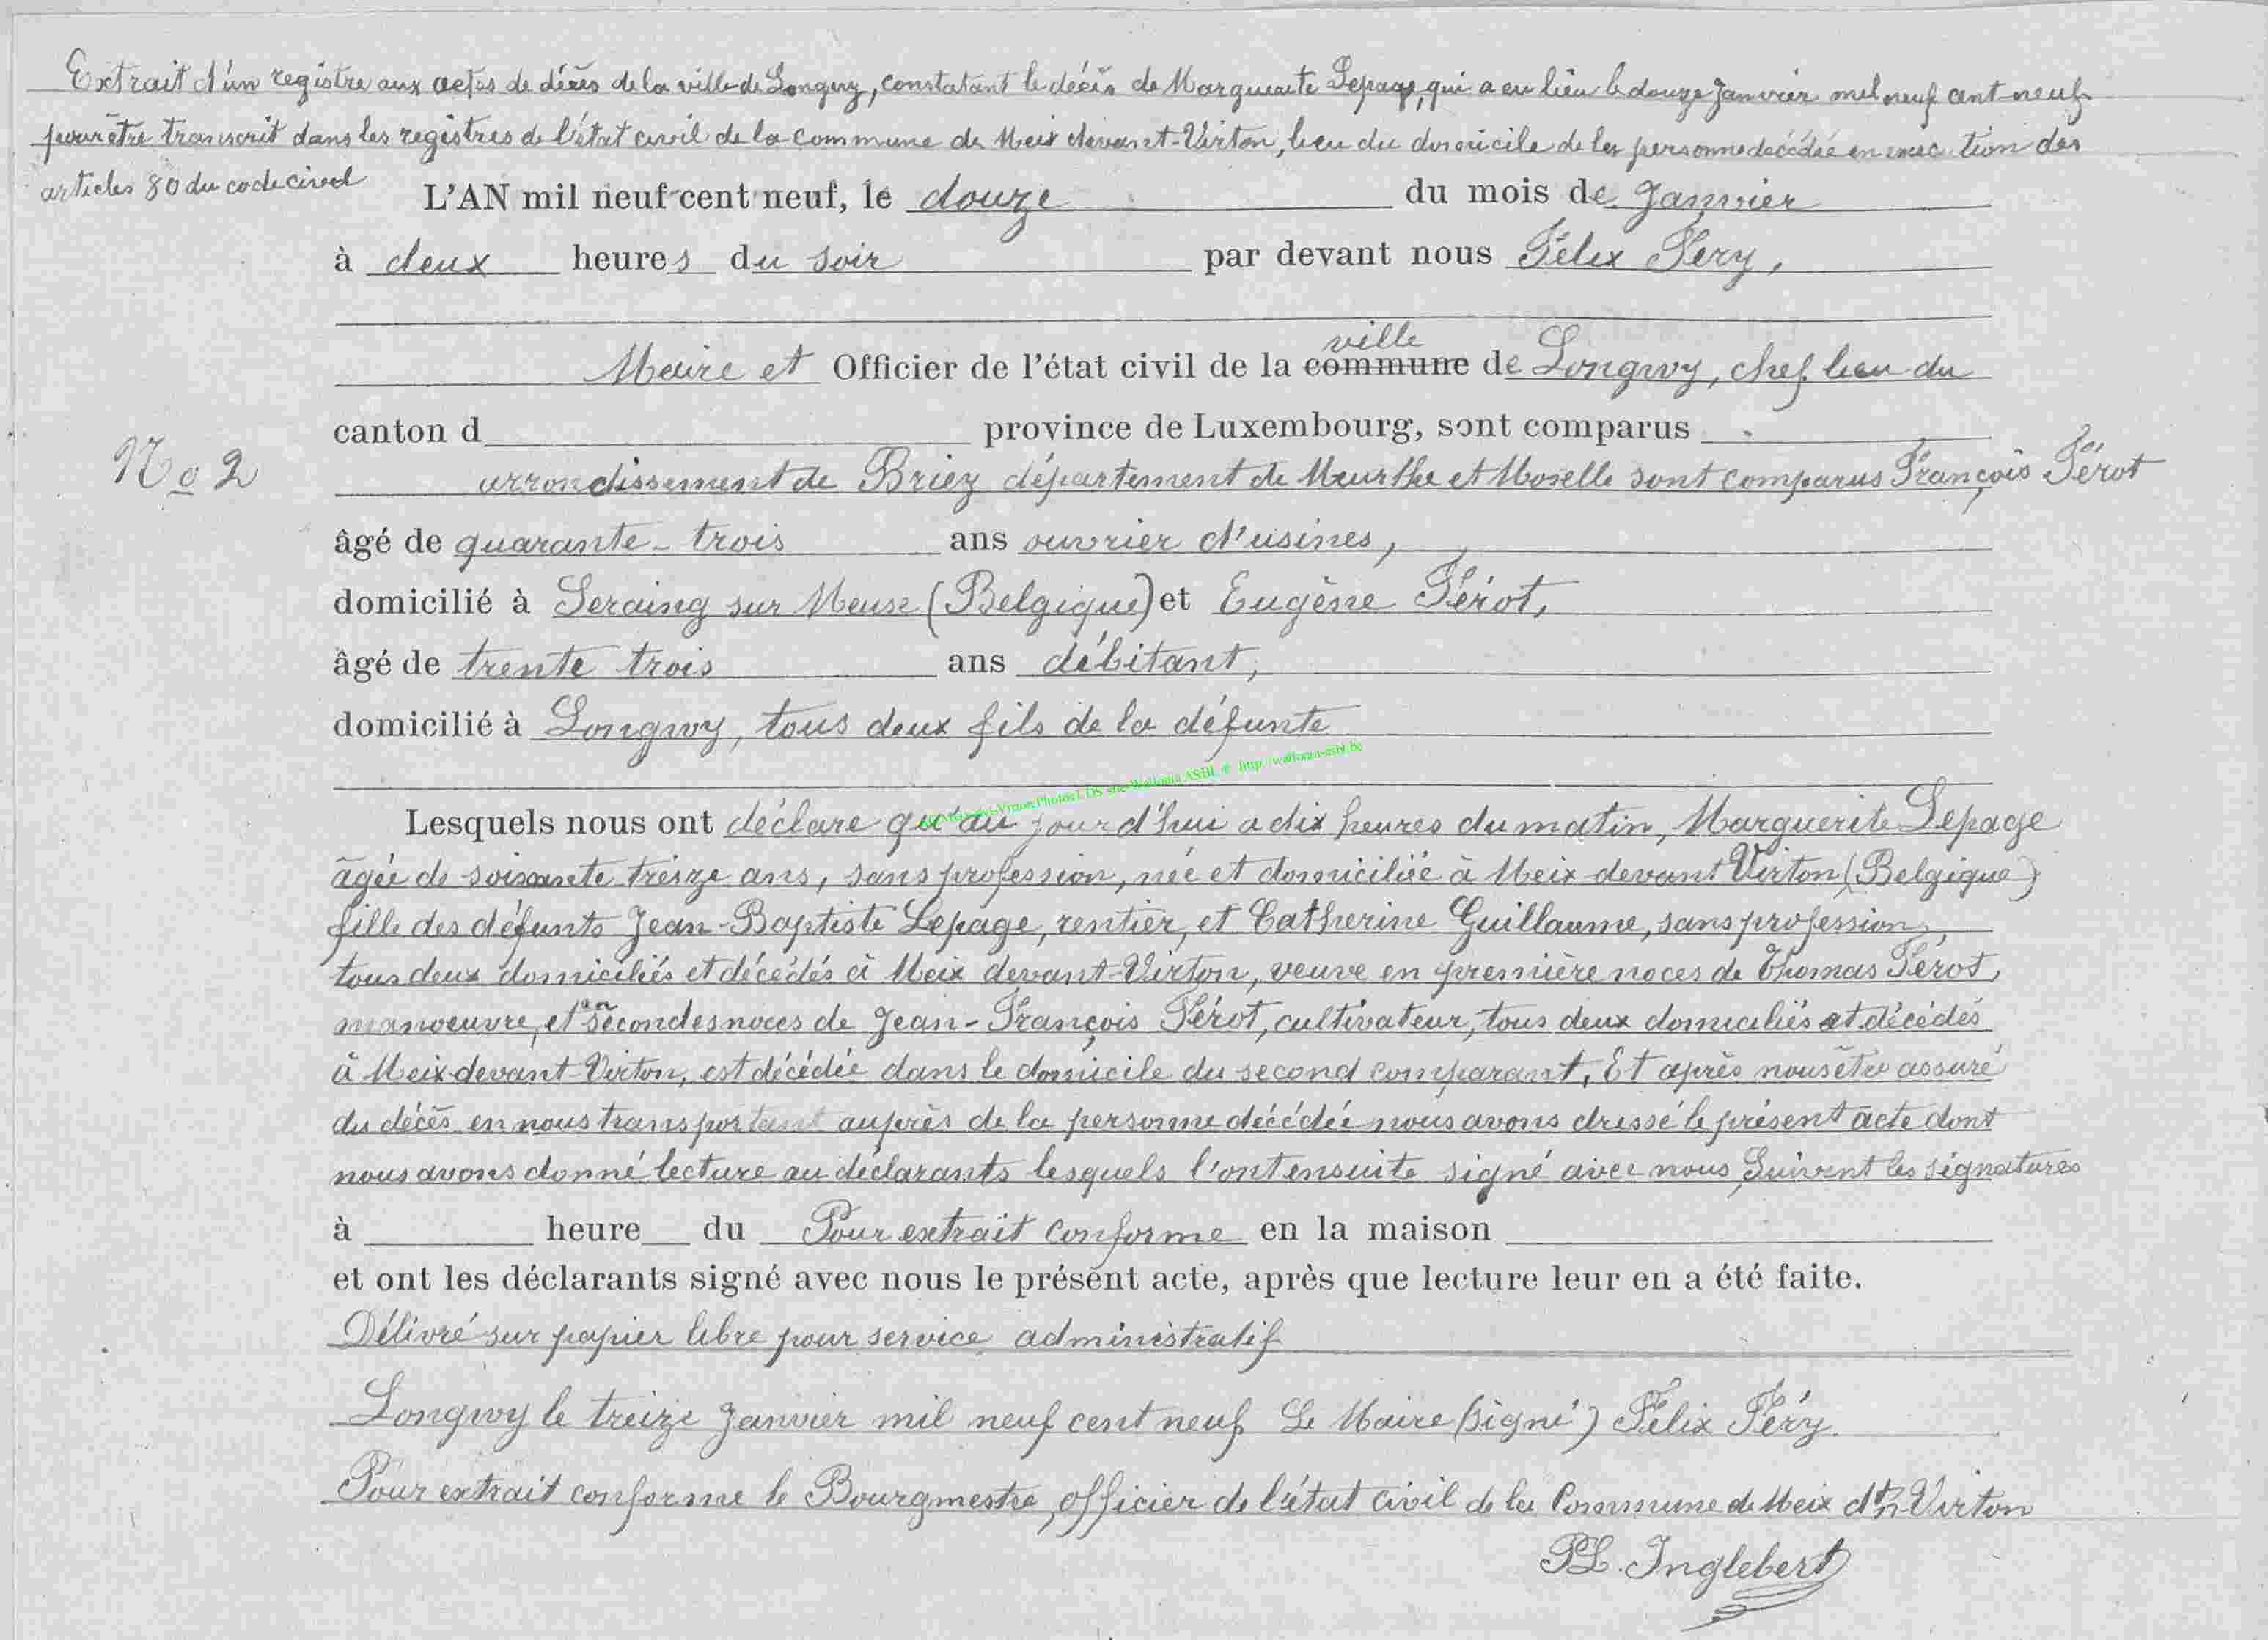 Extrait d'un registre aux actes de décès de la ville de Longwy, constatant le décès de Marguerite Lepage, qui a eu lieu le douze Janvier mil neuf cent neuf
pour être transcrit dans les registres de l'état civil de la commune de Meix devant-Virton, lieu du domicile de la personne décédée en exécution des
articles 80 du code civil
L'AN mil neuf cent neuf, le douze du mois de Janvier
à deux heures du soir par devant nous Félix Féry,
ville
Maire et Officier de l'état civil de la commune de Longwy, chef lieu du
canton d province de Luxembourg, sont comparus
No 2
arrondissement de Briey département de Meurthe et Moselle sont comparus François Férot
âgé de quarante-trois ans ouvrier d'usines,
domicilié à Seraing sur Meuse (Belgique) et Eugène Férot,
âgé de trente trois ans débitant,
domicilié à Longwy, tous deux fils de la défunte
Photos LDS site Wallonia ASBL © http://wallonia-asbl.be
Lesquels nous ont déclare qu'au jour d'hui a dix heures du matin, Marguerite Lepage
âgée de soixante treize ans, sans profession, née et domiciliée à Meix devant Virton (Belgique)
fille des défunts Jean-Baptiste Lepage, rentier, et Catherine Guillaume, sans profession,
tous deux domiciliés et décédés à Meix devant-Virton, veuve en première noces de Thomas Férot,
manoeuvre, et en secondes noces de Jean-François Férot, cultivateur, tous deux domiciliés et décédés
à Meix devant-Virton, est décédée dans le domicile du second comparant. Et après nous être assuré
du décès en nous transportant auprès de la personne décédée nous avons dressé le présent acte dont
nous avons donné lecture au déclarants lesquels l'ont ensuite signé avec nous Suivent les signatures
à heure du Pour extrait conforme en la maison
et ont les déclarants signé avec nous le présent acte, après que lecture leur en a été faite.
Délivré sur papier libre pour service administratif
Longwy le treize Janvier mil neuf cent neuf Le Maire (signé) Félix Féry.
Pour extrait conforme le Bourgmestre, officier de l'état civil de la Commune de Meix dt-Virton
PL. Inglebert